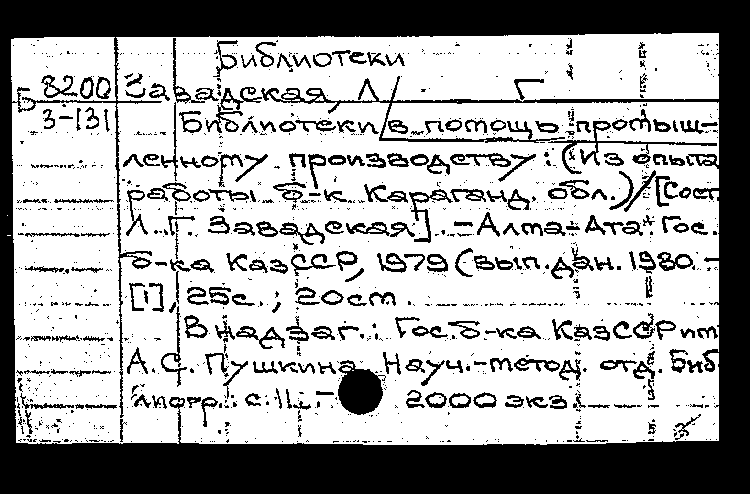 Библиотеки
Б 8200 Завадская, Л Г
3-131 Библиотеки в помощь промыш-
ленному производству: (Из опыта
работы б-к Караганд. обл.)/[Сост.
Л. Г. Завадская]. - Алма-Ата: Гос.
б-ка КазССР, 1979 (вып. дан. 1980 -
[1], 25с. ; 20ст.
В надзаг.: Гос. б-ка КазССР им
А. С. Пушкина Науч.-метод. отд. Биб
лиогр.: с. 11. - 2000 экз.